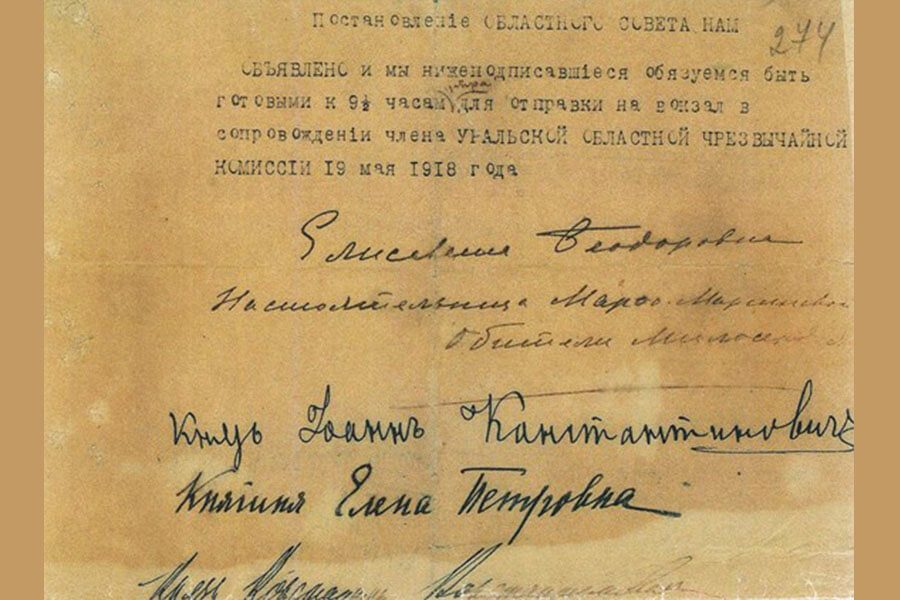 Постановленiе ОБЛАСТНОГО СОВЕТА НАМ
274
ОБЪЯВЛЕНО и мы нижеподписавшiеся обязуемся быть
утра
готовыми к 9½ часам для отправки на вокзал в
сопровожденiи члена УРАЛЬСКОЙ ОБЛАСТНОЙ ЧРЕЗВЫЧАЙНОЙ
КОМИССIИ 19 мая 1918 года
Елисавета Ѳеодоровна
Настоятельница Марѳо-Мариинской
Обители
Князь Iоаннъ Константиновичъ
Княгиня Елена Петровна
Князь Константинъ Константиновичъ